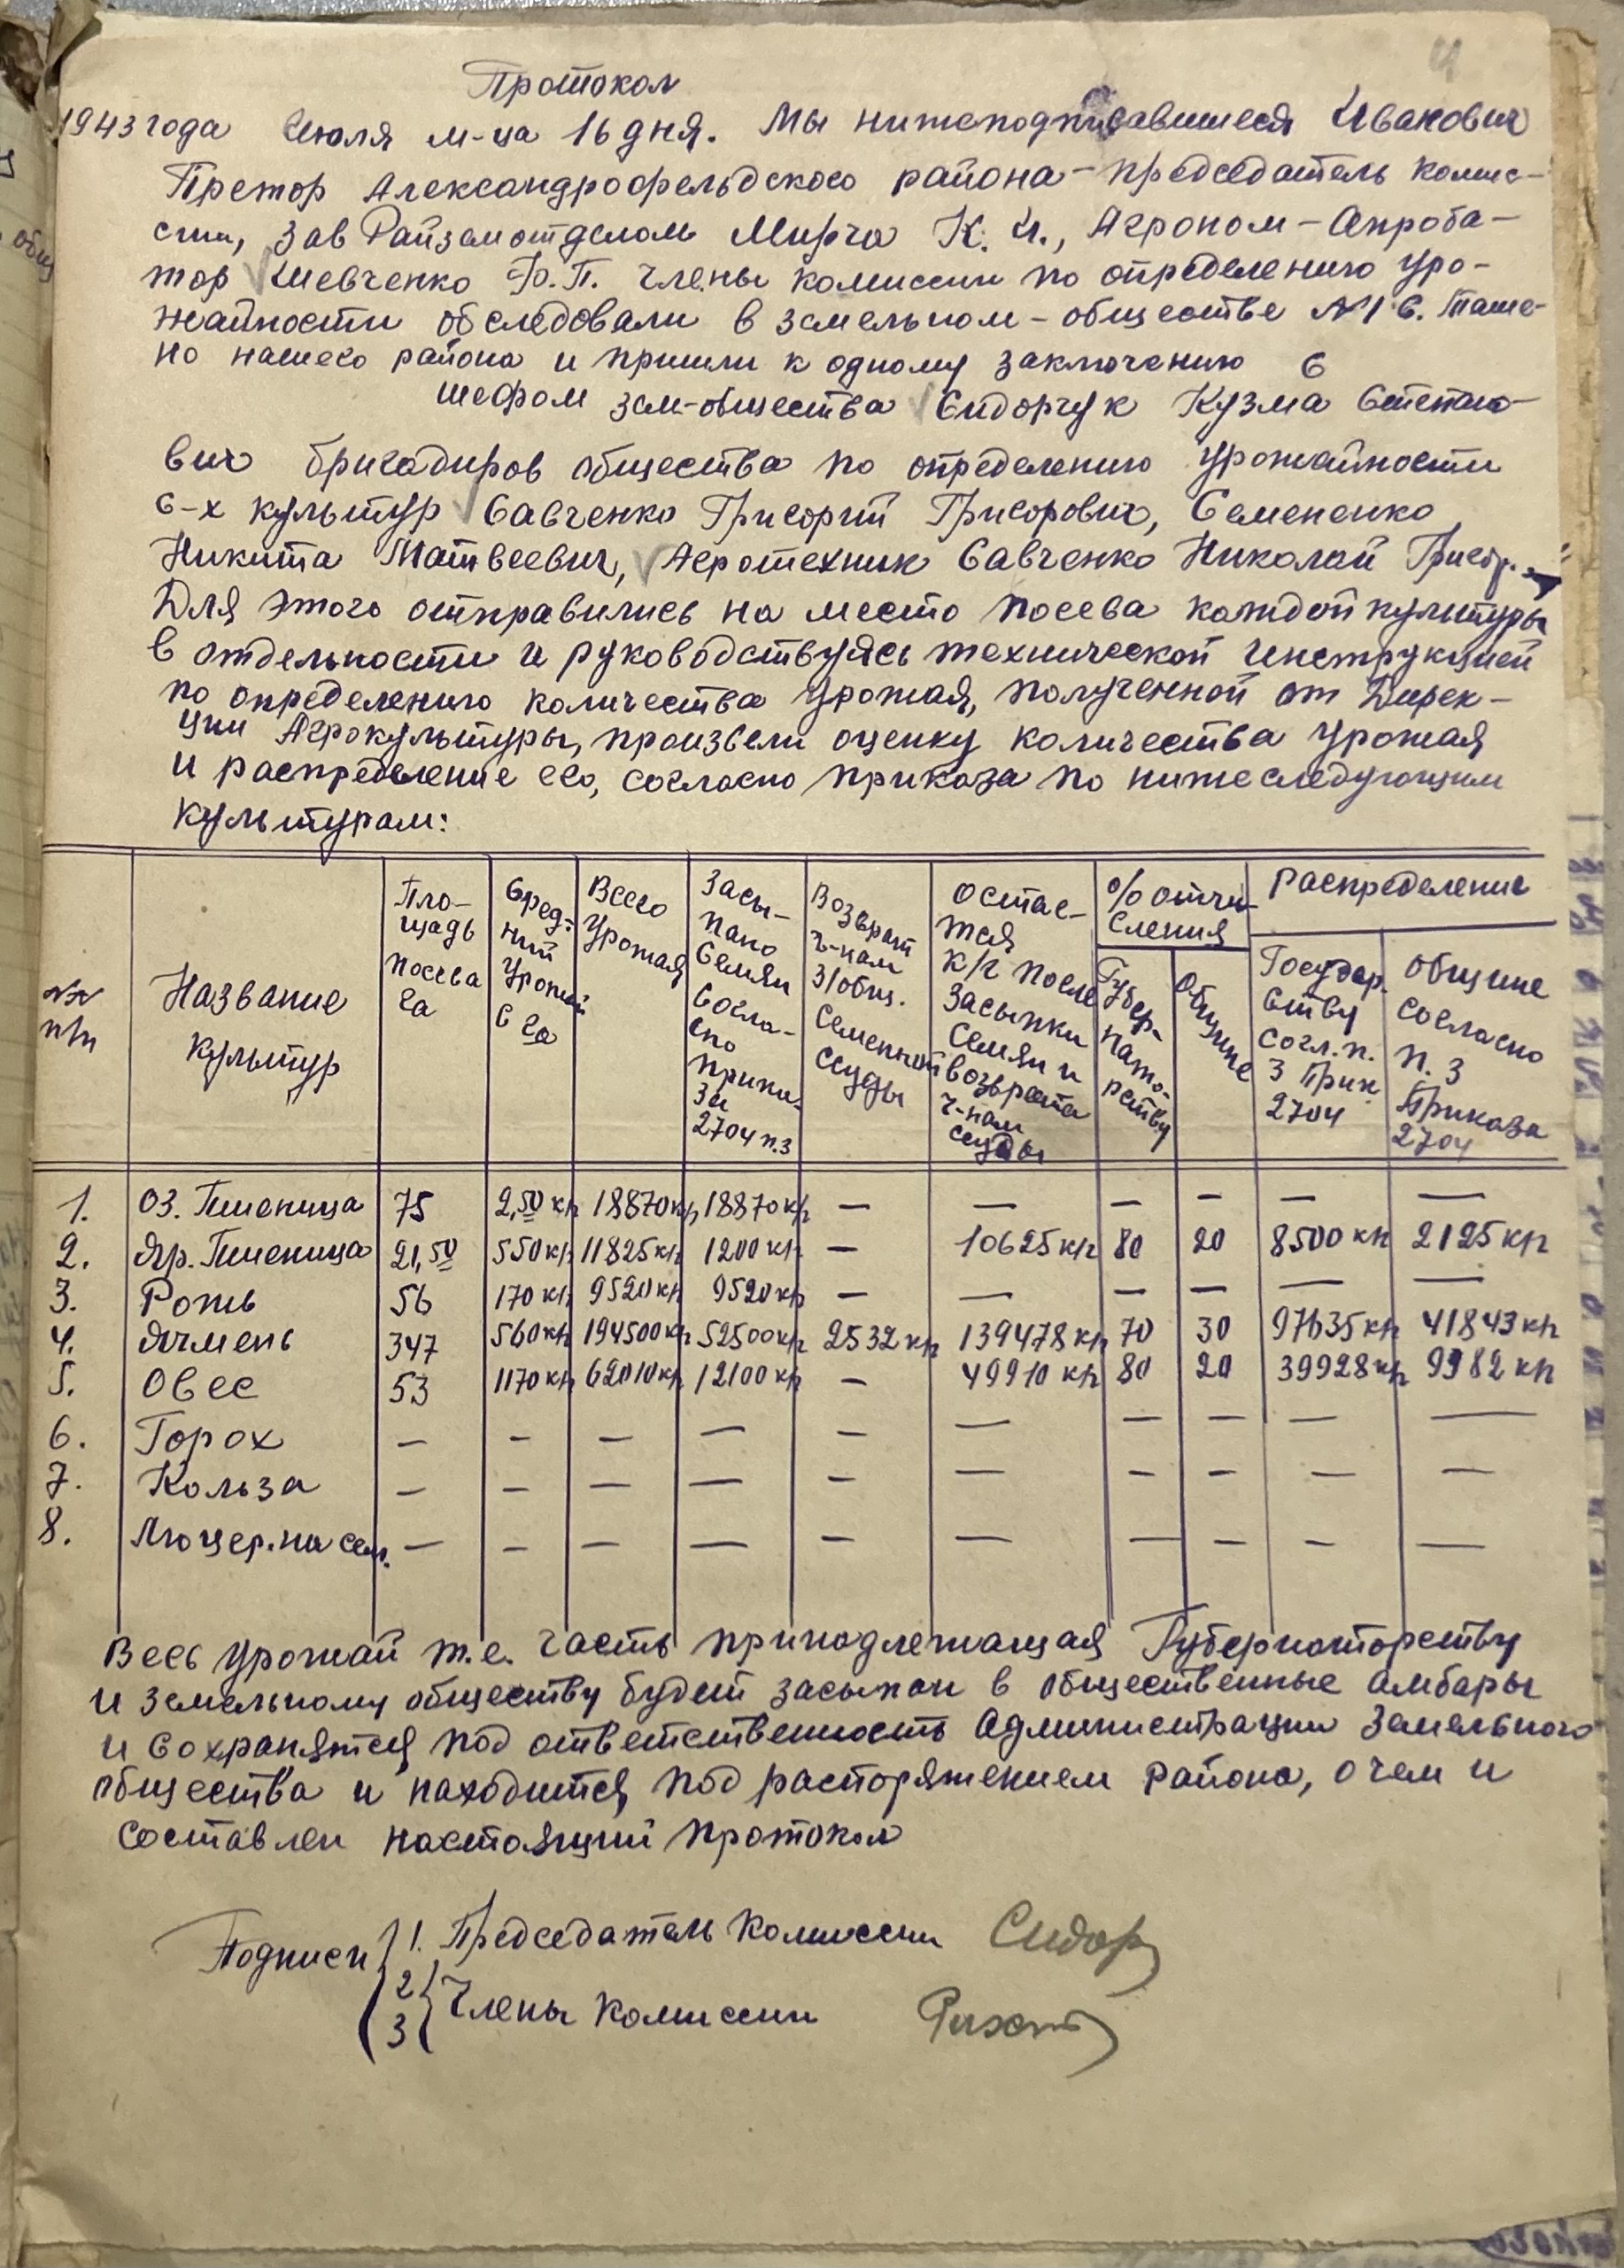 Протокол
1943 года Июля м-ца 16 дня. Мы нижеподписавшиеся Иванович
Претор Александрофельдского района – председатель комис-
сии, Зав Райземотделом Мирча К. И., Агроном – Апроба-
тор Шевченко Ф. П. члены комиссии по определению уро-
жайности обследовали в земельном – обществе №1 с. Таше-
но нашего района и пришли к одному заключению с
шефом зем-общества Сидорчук Кузма Степано-
вич бригадиров общества по определению урожайности
с-х культур Савченко Григорий Григорович, Семененко
Никита Матвеевич, Агротехник Савченко Николай Григор.
Для этого отправились на место посева каждой культуры
в отдельности и руководствуясь технической инструкцией
по определению количества урожая, полученной от Дирек-
ции Агрокультуры, произвели оценку количества урожая
и распределение его, согласно приказа по нижеследующим
культурам:
№№ п/п | Название культур | Пло-щадь посева га | Сред-ний урожай с га | Всего урожая | Засы-пано семян согла-сно прика-за 2704 п.3 | Возврат ч-нам з/общ. семенной ссуды | Остае-тся к/г после засыпки семян и возврата ч-нам ссуды | % отчи-сления | Распределение
Губер-нато-рству | Общине | Государ-ству согл. п. 3 Прик 2704 | Общине согласно п. 3 Приказа 2704
1. Оз. Пшеница 75 2,50 кгр 18870 кгр 18870 кгр — — — — — —
2. Яр. Пшеница 21,50 550 кгр 11825 кгр 1200 кгр — 10625 кгр 80 20 8500 кгр 2125 кгр
3. Рожь 56 170 кгр 9520 кгр 9520 кгр — — — — — —
4. Ячмень 347 560 кгр 194500 кгр 52500 кгр 2532 кгр 139478 кгр 70 30 97635 кгр 41843 кгр
5. Овес 53 1170 кгр 62010 кгр 12100 кгр — 49910 кгр 80 20 39928 кгр 9982 кгр
6. Горох — — — — — — — — — —
7. Кольза — — — — — — — — — —
8. Люцер. на сем. — — — — — — — — — —
Весь урожай т.е. часть принадлежащая Губернаторству
и земельному обществу будет засыпан в общественные амбары
и сохранятся под ответственность Администрации Земельного
общества и находится под распоряжением района, о чем и
составлен настоящий протокол
Подписи 1. Председатель Комиссии Сидор
2
3 Члены Комиссии